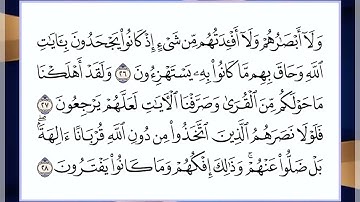 وَلَآ أَبْصَٰرُهُمْ وَلَآ أَفْـِٔدَتُهُم مِّن شَىْءٍ إِذْ كَانُوا۟ يَجْحَدُونَ بِـَٔايَٰتِ
ٱللَّهِ وَحَاقَ بِهِم مَّا كَانُوا۟ بِهِۦ يَسْتَهْزِءُونَ ٢٦ وَلَقَدْ أَهْلَكْنَا
مَا حَوْلَكُم مِّنَ ٱلْقُرَىٰ وَصَرَّفْنَا ٱلْـَٔايَٰتِ لَعَلَّهُمْ يَرْجِعُونَ ٢٧
فَلَوْلَا نَصَرَهُمُ ٱلَّذِينَ ٱتَّخَذُوا۟ مِن دُونِ ٱللَّهِ قُرْبَانًا ءَالِهَةًۢ ۖ
بَلْ ضَلُّوا۟ عَنْهُمْ ۚ وَذَٰلِكَ إِفْكُهُمْ وَمَا كَانُوا۟ يَفْتَرُونَ ٢٨